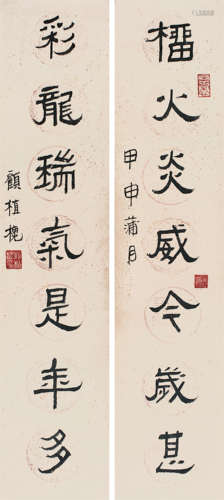 榴火炎威今歲甚
甲申蒲月
彩龍瑞氣是年多
顧植槐